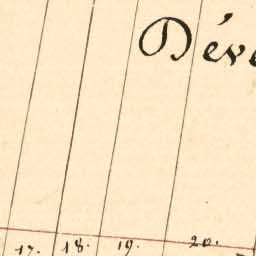 Déve
17. 18. 19. 20.